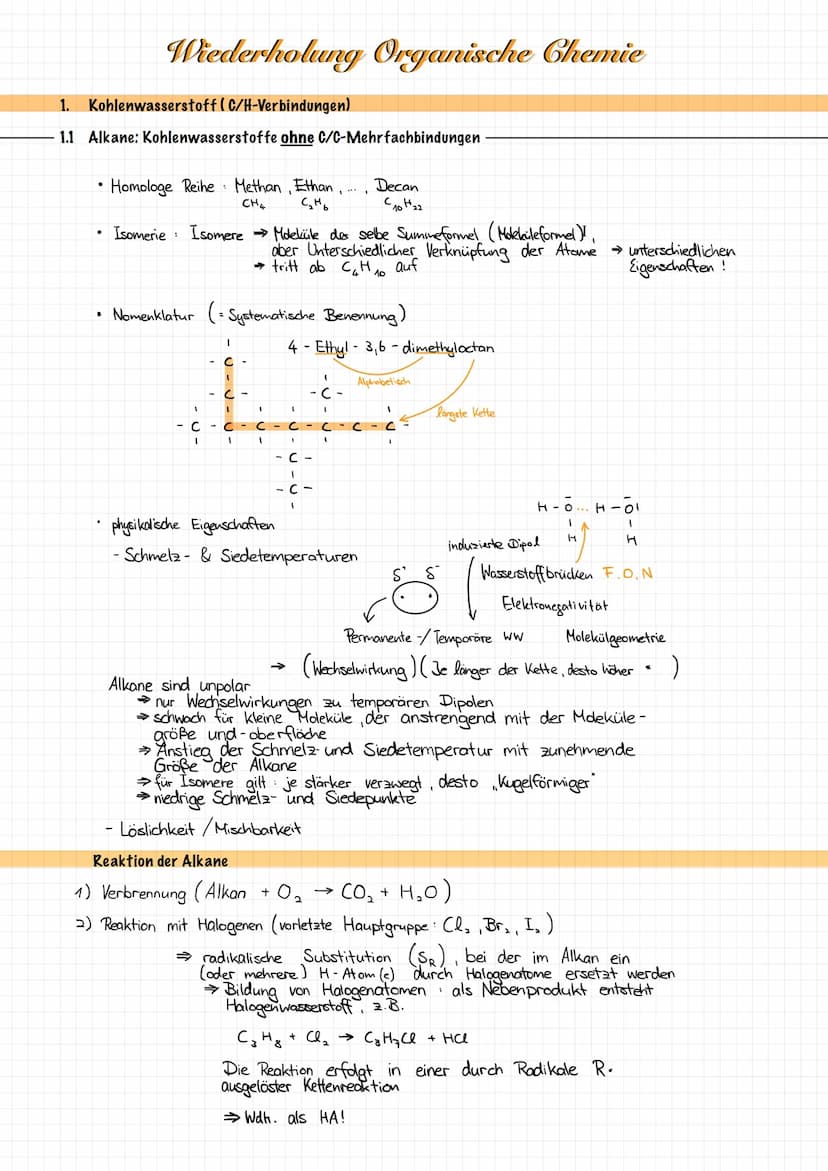 Wiederholung Organische Chemie
1. Kohlenwasserstoff (C/H-Verbindungen)
1.1 Alkane: Kohlenwasserstoffe ohne C/C-Mehrfachbindungen
• Homologe Reihe : Methan, Ethan, ..., Decan
CH₄ C₂H₆ C₁₀H₂₂
• Isomerie : Isomere → Moleküle das selbe Summeformel (Moleküleformel)!,
aber Unterschiedlicher Verknüpfung der Atome → unterschiedlichen
→ tritt ab C₄H₁₀ auf Eigenschaften !
• Nomenklatur (= Systematische Benennung)
4 - Ethyl - 3,6 - dimethyloctan
- C -
Alphabetisch
- C - - C -
längste Kette
- C - C - C - C - C - C - C -
- C -
- C -
H - O ... H - O
H H
• physikalische Eigenschaften
induzierte Dipol
- Schmelz- & Siedetemperaturen
δ⁺ δ⁻ Wasserstoffbrücken F, O, N
Elektronegativität
Permanente -/Temporäre WW Molekülgeometrie
→ (Wechselwirkung) (Je länger der Kette, desto höher • )
Alkane sind unpolar
→ nur Wechselwirkungen zu temporären Dipolen
→ schwach für kleine Moleküle, der anstrengend mit der Moleküle-
größe und -oberfläche
→ Anstieg der Schmelz- und Siedetemperatur mit zunehmende
Größe der Alkane
→ für Isomere gilt : je stärker verzwegt, desto „Kugelförmiger"
→ niedrige Schmelz- und Siedepunkte
- Löslichkeit / Mischbarkeit
Reaktion der Alkane
1) Verbrennung (Alkan + O₂ → CO₂ + H₂O)
2) Reaktion mit Halogenen (vorletzte Hauptgruppe : Cl₂, Br₂, I₂)
⇒ radikalische Substitution (SR), bei der im Alkan ein
(oder mehrere) H-Atom(e) durch Halogenatome ersetzt werden
→ Bildung von Halogenatomen : als Nebenprodukt entsteht
Halogenwasserstoff, z.B.
C₃H₈ + Cl₂ → C₃H₇Cl + HCl
Die Reaktion erfolgt in einer durch Radikale R•
ausgelöster Kettenreaktion
⇒ Wdh. als HA!